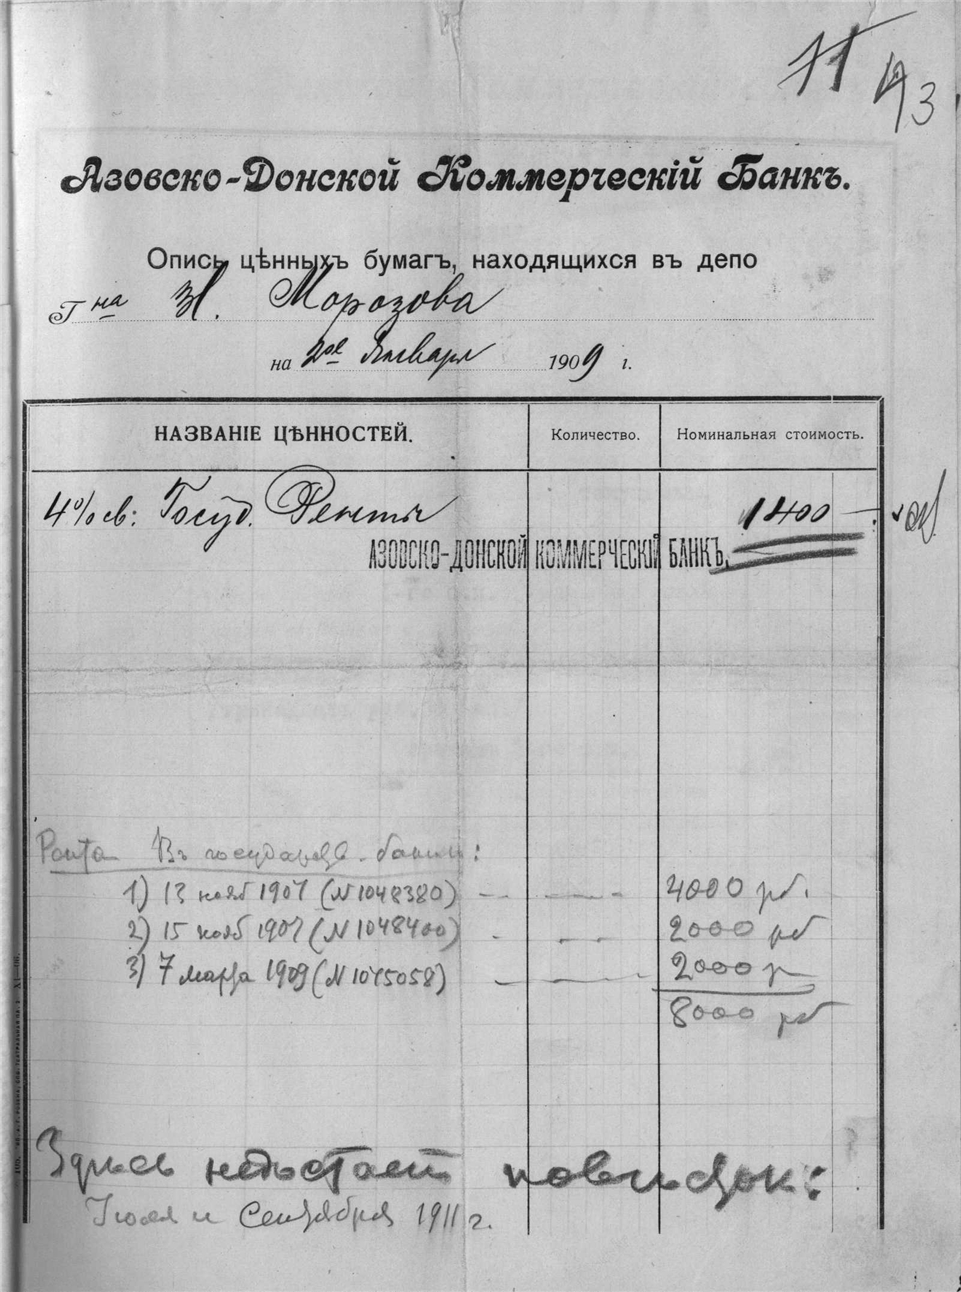 11 193
Азовско-Донской Коммерческій Банкъ.
Опись цѣнныхъ бумагъ, находящихся въ депо
Гна Н. Морозова
на 2ое Января 1909 г.
НАЗВАНІЕ ЦѢННОСТЕЙ. Количество. Номинальная стоимость.
4% св: Госуд. Ренты 1400 —
АЗОВСКО-ДОНСКОЙ КОММЕРЧЕСКІЙ БАНКЪ.
Рента Въ государств. банке:
1) 13 нояб 1907 (N 1048380) — — 4000 рб.
2) 15 нояб 1907 (N 1048400) — — 2000 рб
3) 7 марта 1909 (N 1045058) — — 2000 р
8000 рб
Здѣсь недостаетъ повѣстокъ:
Июля и Сентября 1911 г.